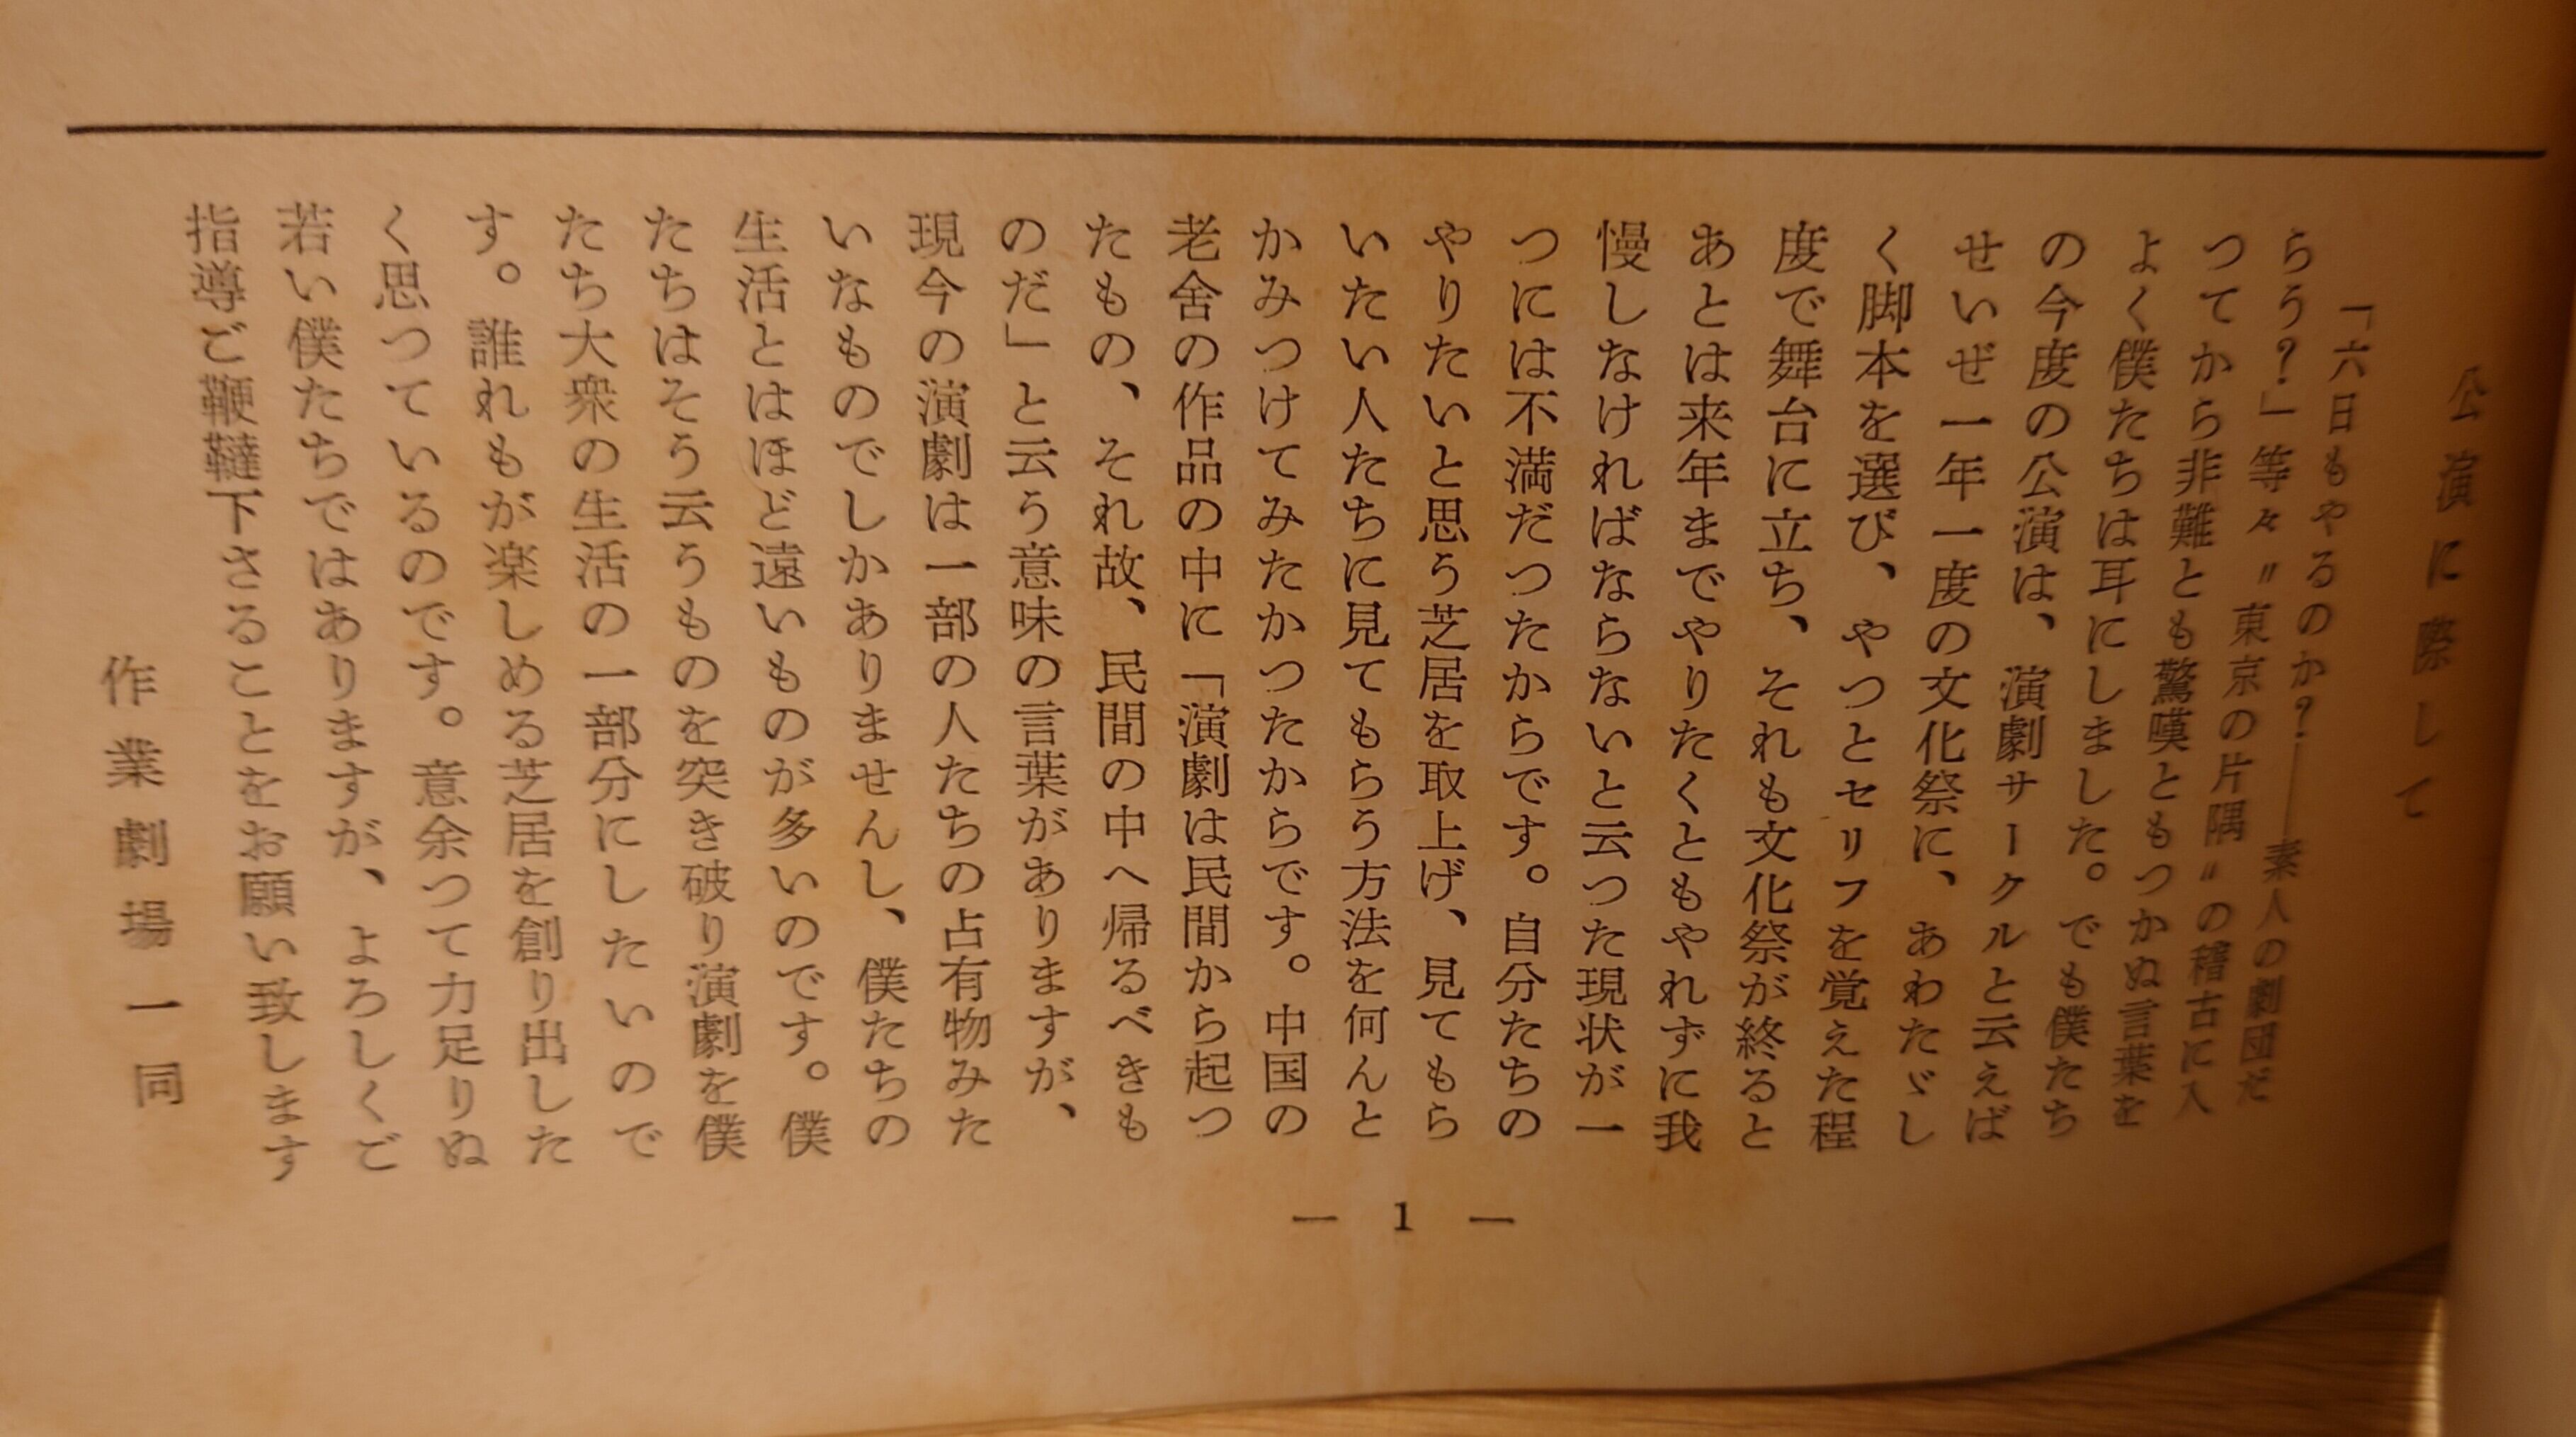 公演に際して
「六日もやるのか?――素人の劇団だ
らう?」等々〃東京の片隅〃の稽古に入
つてから非難とも驚嘆ともつかぬ言葉を
よく僕たちは耳にしました。でも僕たち
の今度の公演は、演劇サークルと云えば
せいぜ一年一度の文化祭に、あわたゞし
く脚本を選び、やつとセリフを覚えた程
度で舞台に立ち、それも文化祭が終ると
あとは来年までやりたくともやれずに我
慢しなければならないと云つた現状が一
つには不満だつたからです。自分たちの
やりたいと思う芝居を取上げ、見てもら
いたい人たちに見てもらう方法を何んと
かみつけてみたかつたからです。中国の
老舍の作品の中に「演劇は民間から起つ
たもの、それ故、民間の中へ帰るべきも
のだ」と云う意味の言葉がありますが、
現今の演劇は一部の人たちの占有物みた
いなものでしかありませんし、僕たちの
生活とはほど遠いものが多いのです。僕
たちはそう云うものを突き破り演劇を僕
たち大衆の生活の一部分にしたいので
す。誰れもが楽しめる芝居を創り出した
く思つているのです。意余つて力足りぬ
若い僕たちではありますが、よろしくご
指導ご鞭韃下さることをお願い致します
作業劇場一同
― 1 ―